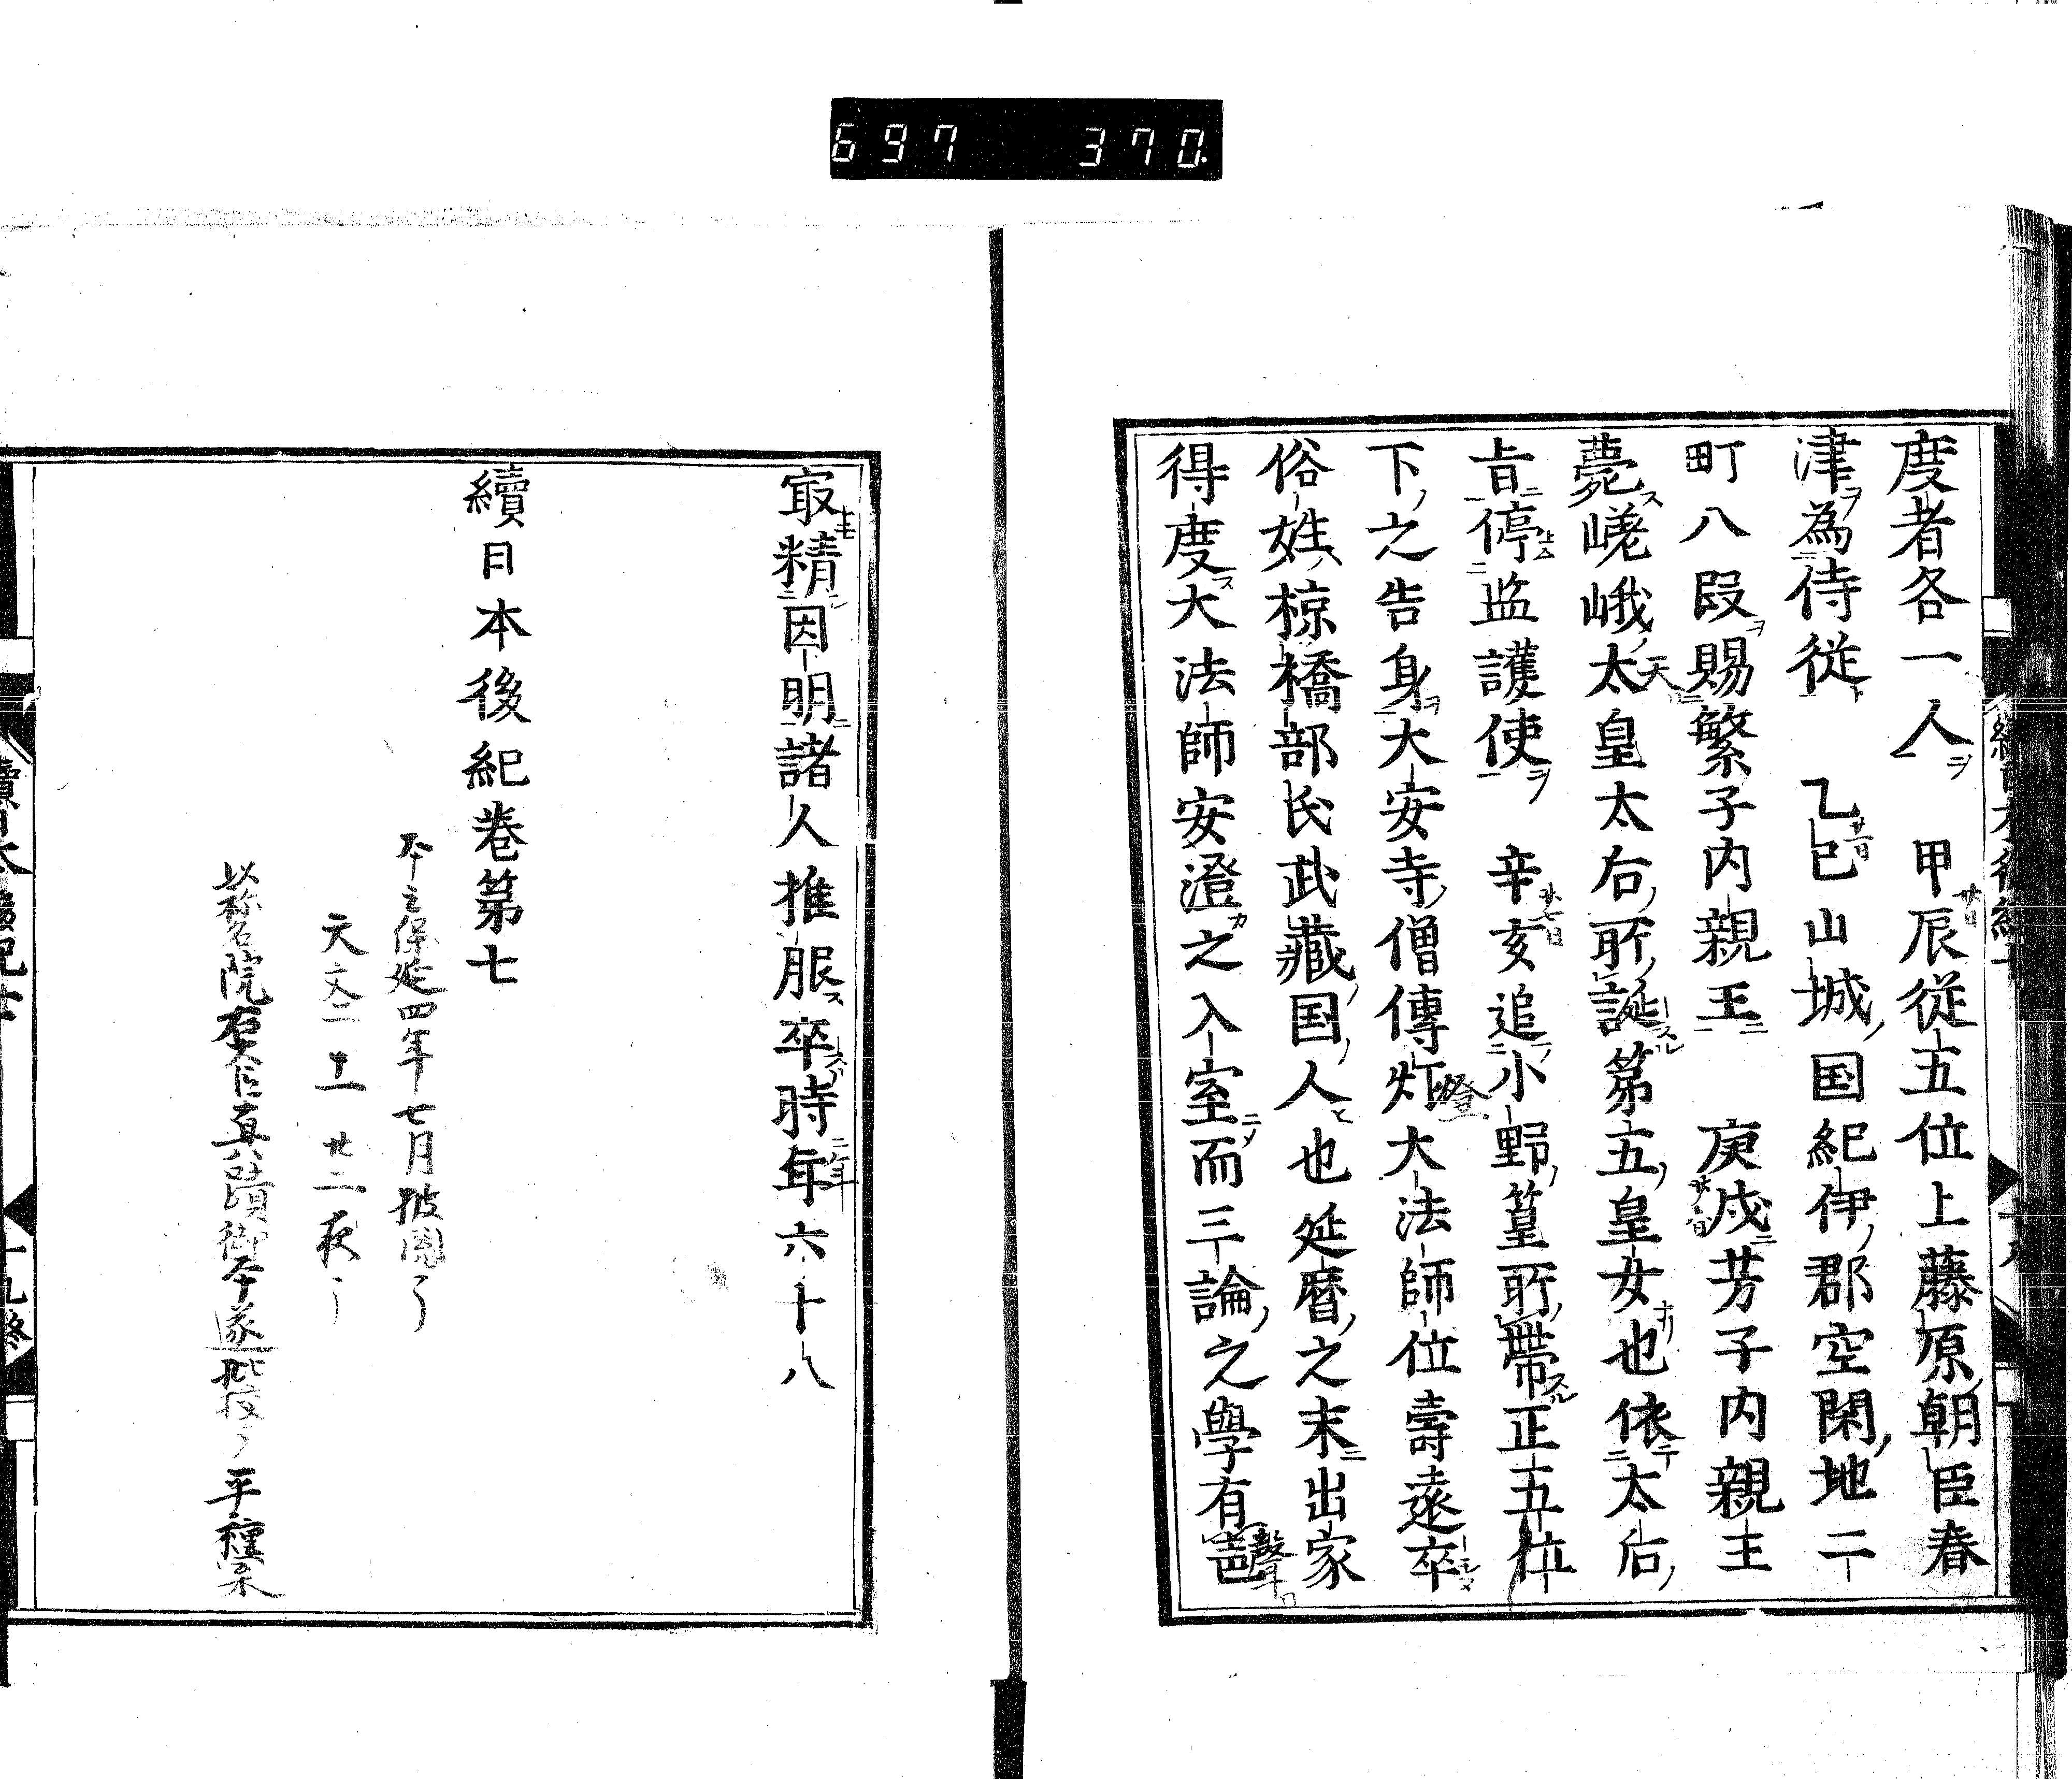 697 370.
度者各一人 甲辰従五位上藤原朝臣春
津為侍従 乙巳山城国紀伊郡空閑地二
町八段賜繁子内親王 庚戌芳子内親王
薨嵯峨太皇太后所誕第五皇女也依太后
旨停监護使 辛亥追小野篁所帶正五位
下之告身大安寺僧傳灯大法師位壽遠卒
俗姓椋橋部氏武藏国人也延暦之末出家
得度大法師安澄之入室而三論之學有
冣精因明諸人推服卒時年六十八
續日本後紀巻第七
本云保延四年七月披閲了
天文二 十一 廿二夜
以称名院右大臣真蹟御本遂批校了